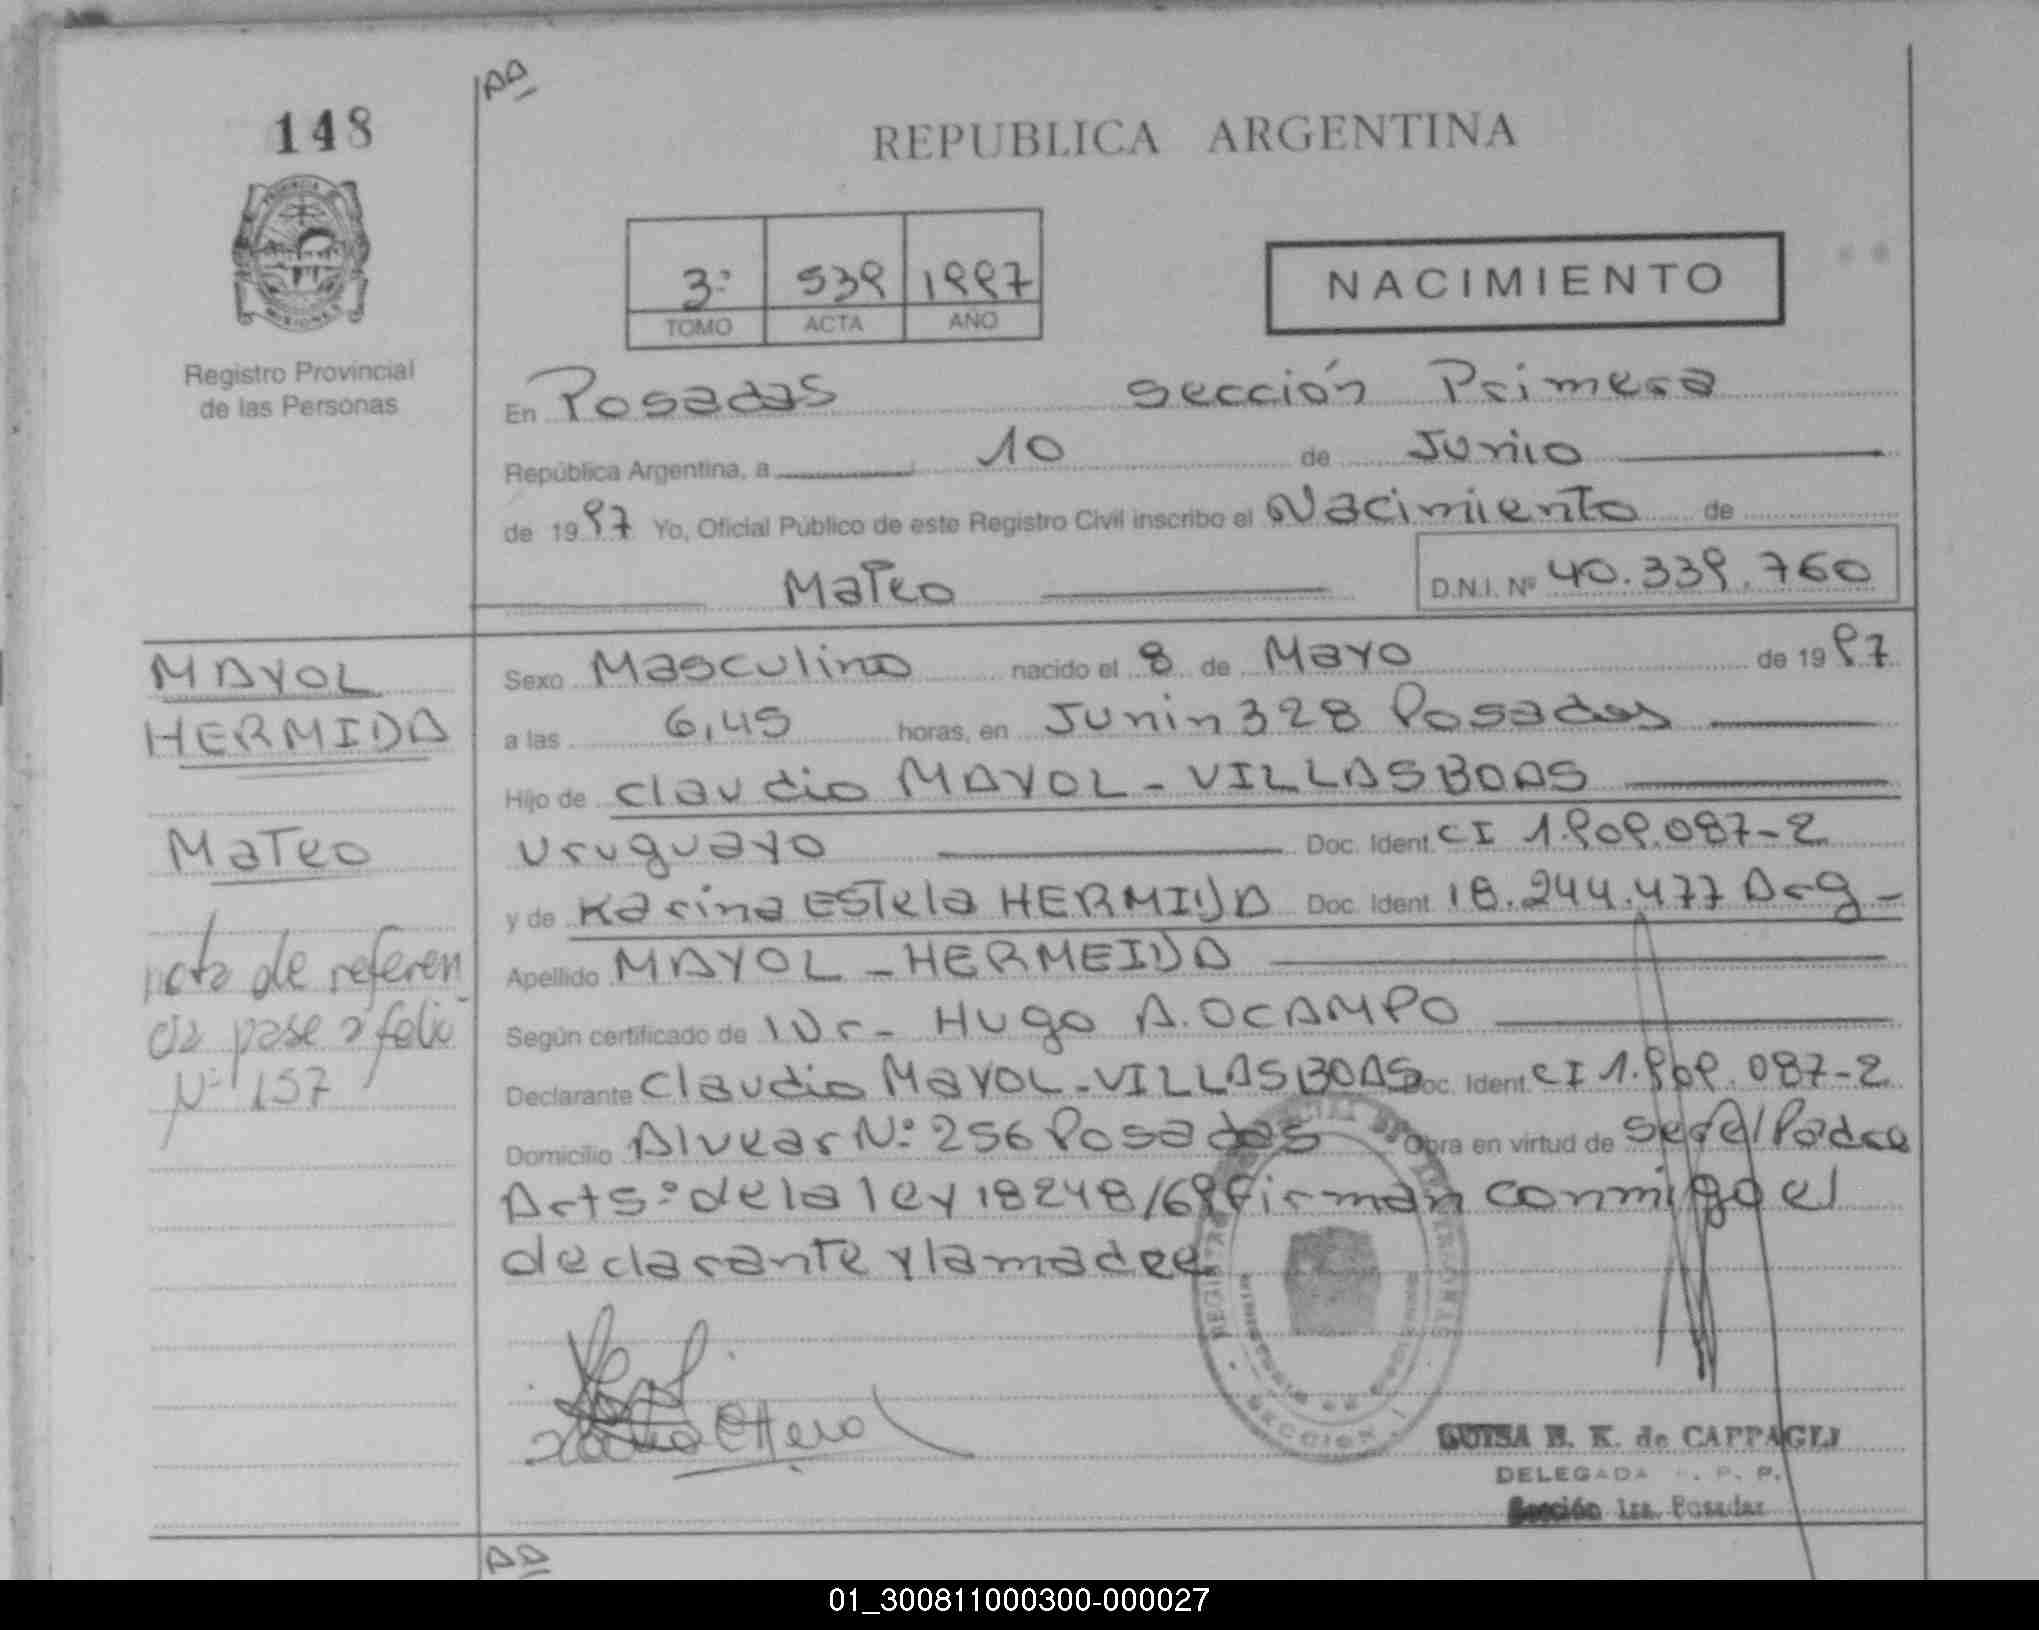 148
REPUBLICA ARGENTINA
PROVINCIA
MISIONES
Registro Provincial
de las Personas
3º 539 1997
TOMO ACTA AÑO
NACIMIENTO
En Posadas Sección Primera
República Argentina, a 10 de Junio
de 1997 Yo, Oficial Público de este Registro Civil inscribo el Nacimiento de
Mateo D.N.I. Nº 40.339.760
MAYOL
HERMIDA
Mateo
nota de referen
cia pase a folio
Nº 157
Sexo Masculino nacido el 8 de Mayo de 1997
a las 6,45 horas, en Junin 328 Posadas
Hijo de Claudio MAYOL - VILLASBOAS
Uruguayo Doc. Ident. CI 1.909.087-2
y de Karina Estela HERMIDA Doc. Ident. 18.244.477 Arg -
Apellido MAYOL - HERMEIDA
Según certificado de Dr - Hugo A. OCAMPO
Declarante Claudio MAYOL - VILLASBOAS Doc. Ident. CI 1.909.087-2
Domicilio Alvear Nº 256 Posadas Obra en virtud de ser el Padre
Art 5º de la ley 18248/69 firman conmigo el
declarante y la madre
SECCION 1
LUISA E. K. de CAPPAGLI
DELEGADA R. P. P.
Sección 1ra. Posadas
01_300811000300-000027